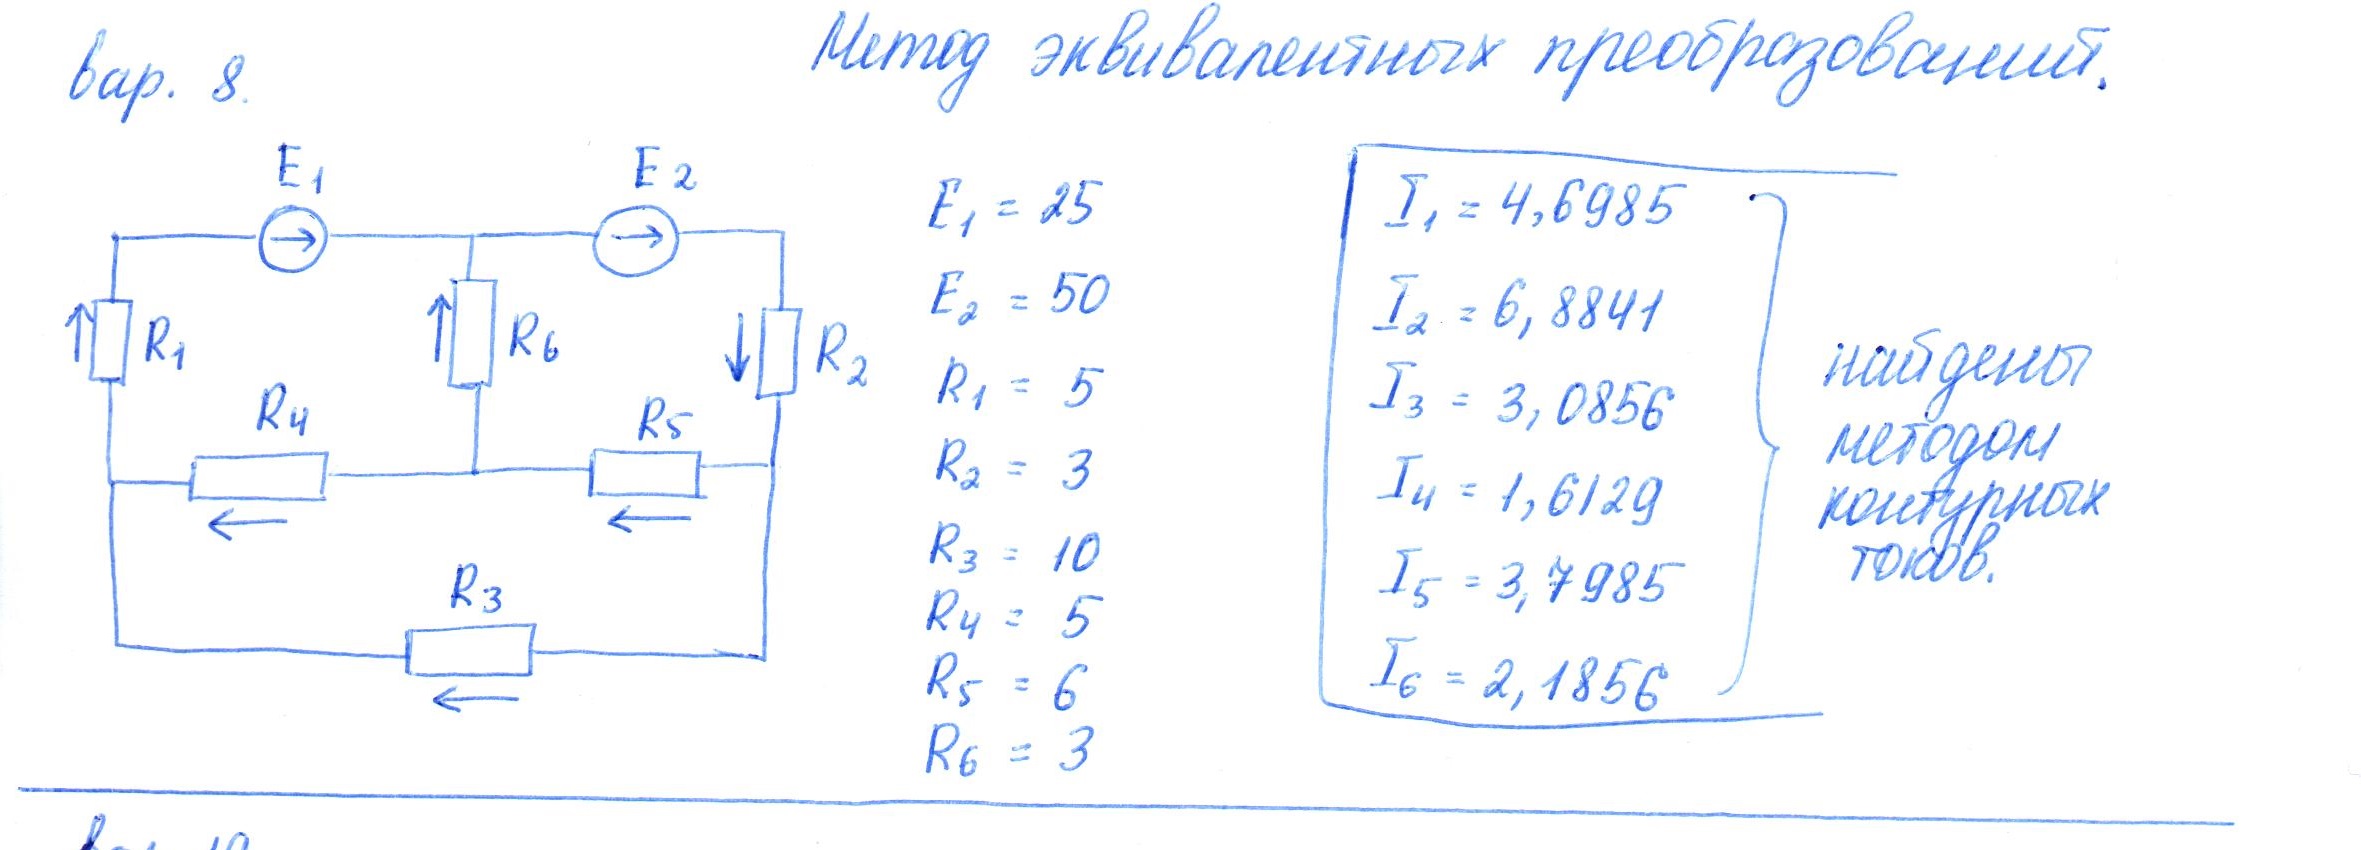 Метод эквивалентных преобразований.
вар. 8.
E1
E2
R1
R6
R2
R4
R5
R3
E1 = 25
E2 = 50
R1 = 5
R2 = 3
R3 = 10
R4 = 5
R5 = 6
R6 = 3
I1 = 4,6985
I2 = 6,8841
I3 = 3,0856
I4 = 1,6129
I5 = 3,7985
I6 = 2,1856
найдены
методом
контурных
токов.